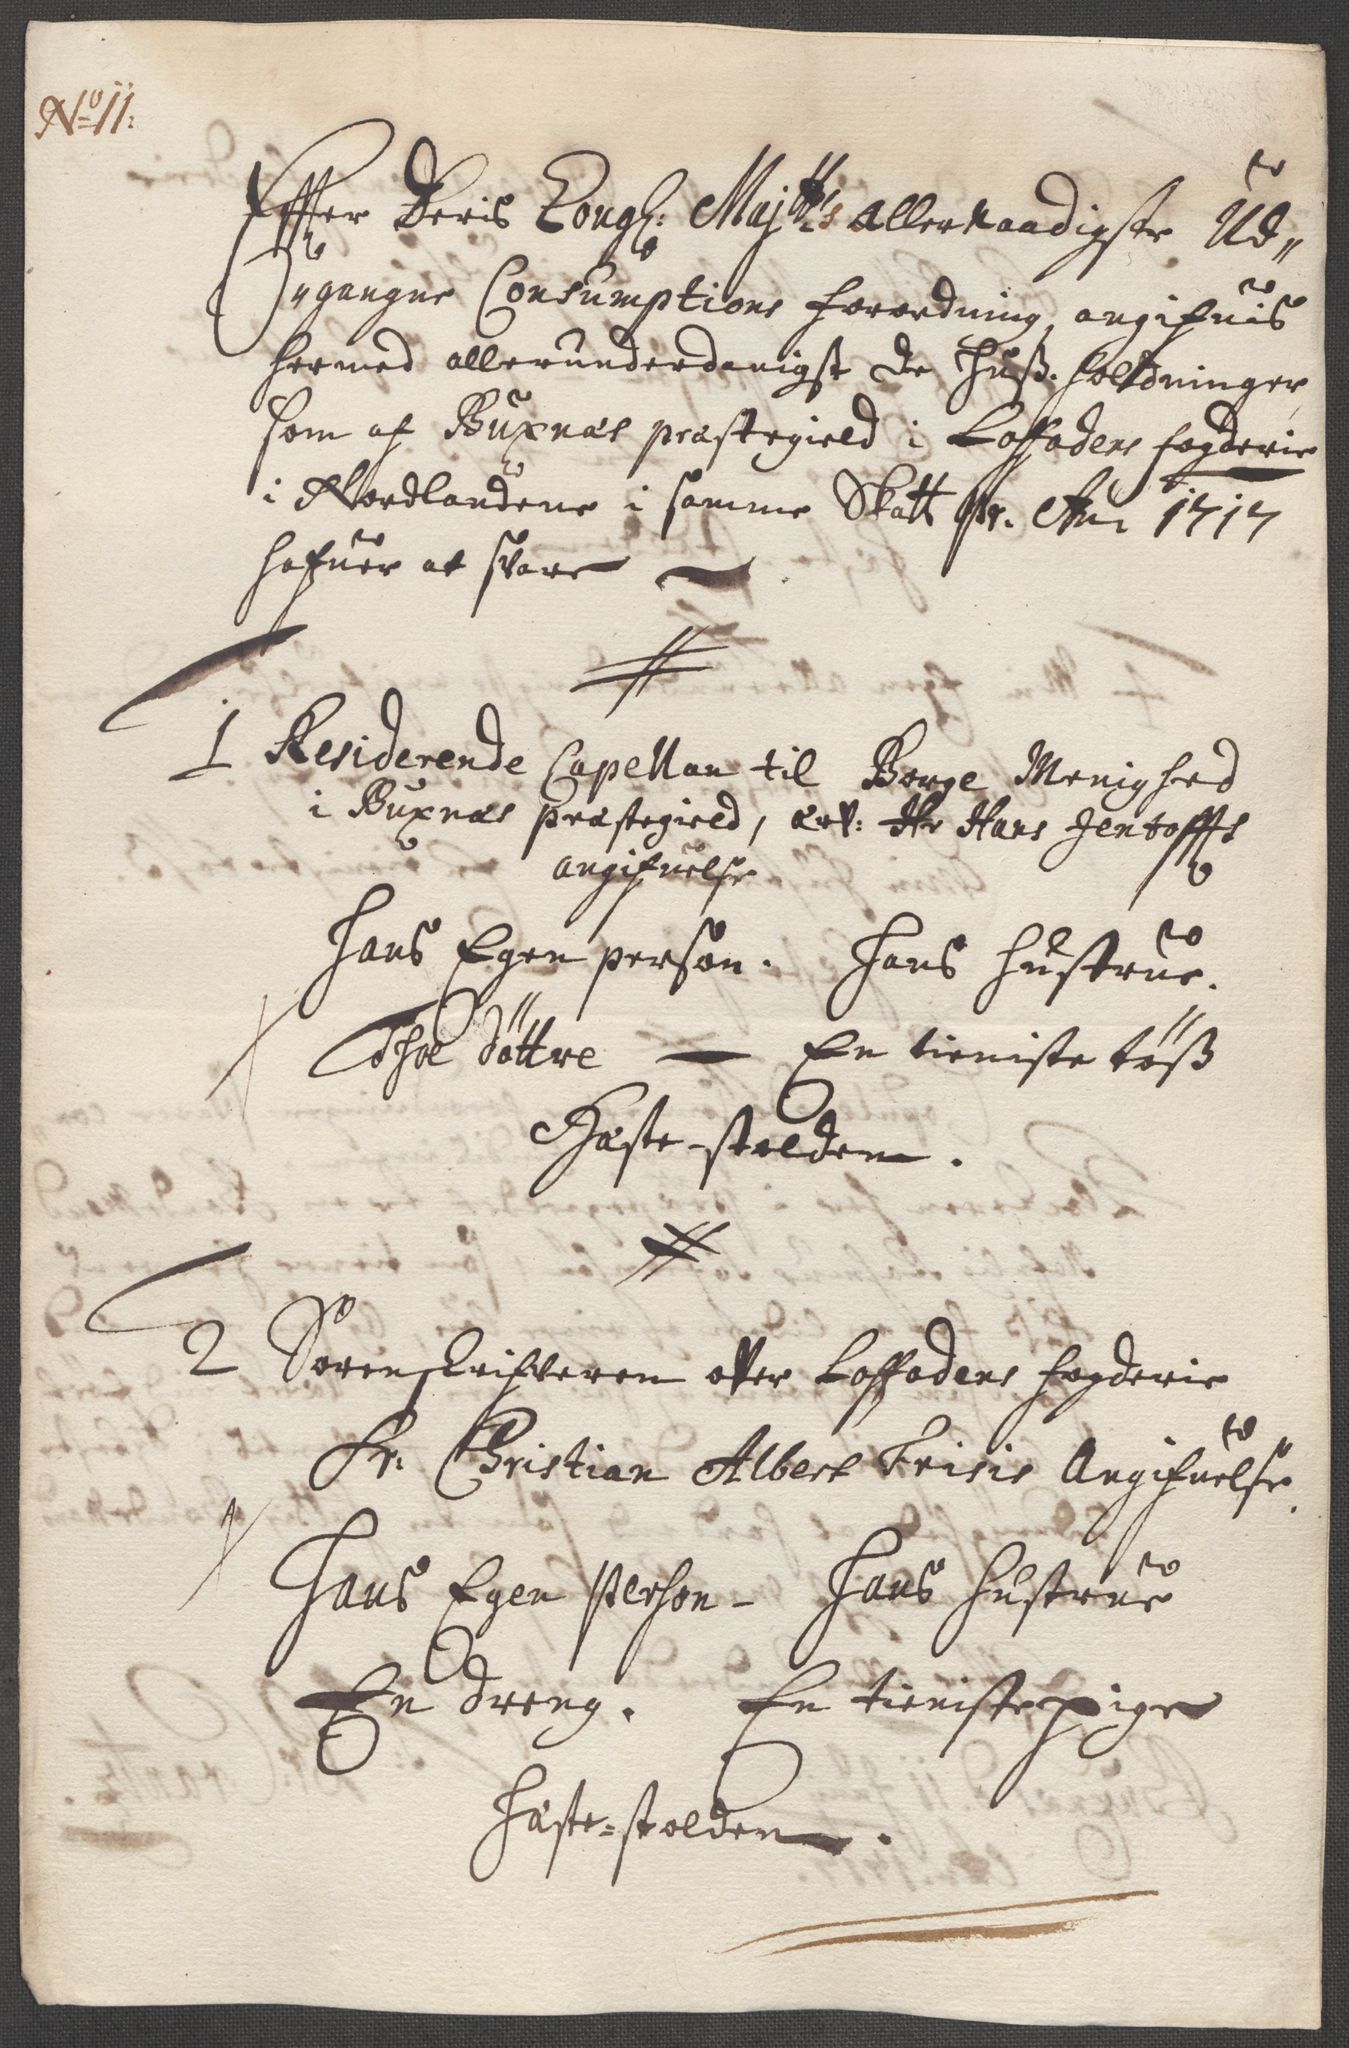 No 11:
Effter Deris Kongl: Maj:tts allernaadigste Ud„
gangne Consumptions forordning, angifues
hermed allerunderdanigst de Huuß-holdninger
som af Buxnæs præstegield i Loffodens fogderie
i Nordlandene i samme Skatt pr. Ao 1717
hafuer at svare
1 Residerende Capellan til Borge Menighed
i Buxnæs præstegield, Hr Hans Jentoffts
angifuelse
Hans Egen person. Hans Hustrue.
Thoe döttre — En tieniste töß
Hæste-stolden.
2 Sorenskrifveren over Loffodens fogderie
Sr. Christian Albert Frisis Angifuelse.
Hans Egen Person – Hans Hustrue
En dreng. En tienistepige
Hæste-stolden.